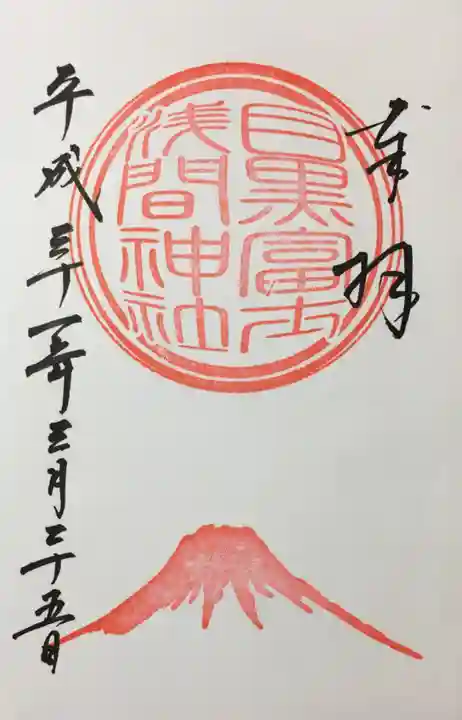 奉拝
目黒富士
浅間神社
平成三十一年三月二十五日